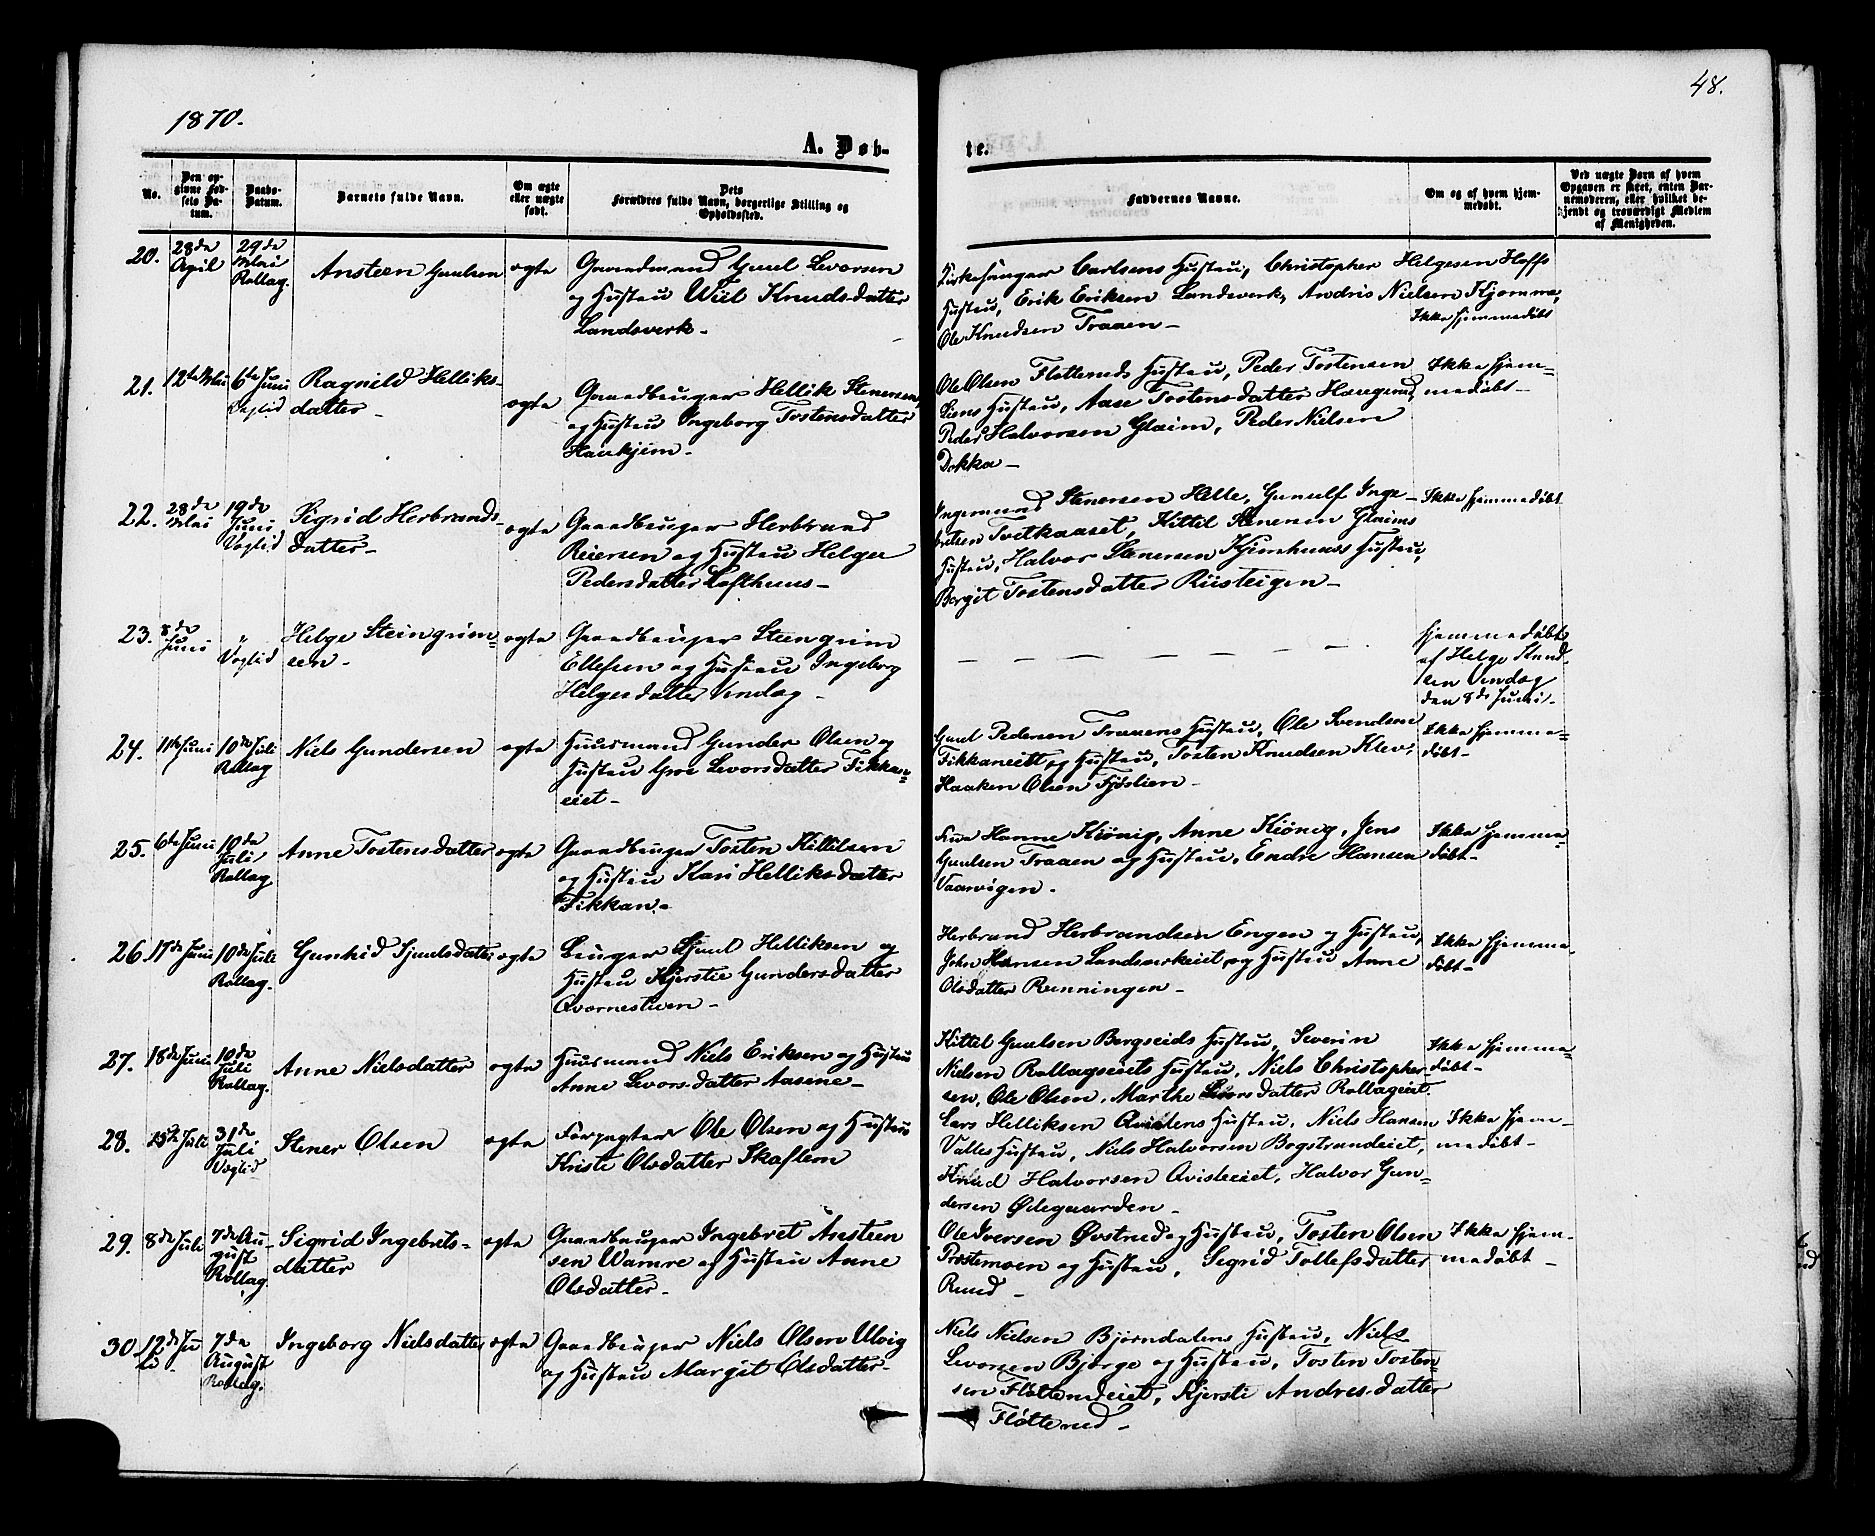 1870.
48.
A. Døb-
te.
No.
Den op-
givne Fød-
sels Da-
tum.
Daabs-
Datum.
Barnets fulde Navn.
Om ægte
eller uægte
født.
Dets
Forældres fulde Navn, borgerlige Stilling og
Opholdssted.
Faddernes Navne.
Om og af hvem hjem-
medøbt.
Ved uægte Børn af hvem
Opgaven er skeet, enten Bar-
nemoderen, eller hvilket be-
kjendt og troværdigt Medlem
af Menigheden.
20.
28de
April
29de
Mai
Rollag.
Ansteen Guulsen
ægte
Gaardmand Guul Levorsen
og Hustru Wiil Knudsdatter
Landsverk-
Kirkesanger Carlsens Hustru, Christopher Helgesen Hoffs
Hustru, Erik Eriksen Landsverk, Andris Nielsen Kjomme,
Ole Knudsen Traaen-
Ikke hjemmedøbt
21.
12te Mai
6te Juni
Veglid
Ragnild Helliks-
datter-
ægte
Gaardbruger Hellik Stenersen
og Hustru Ingeborg Tostensdatter
Haukjem-
Ole Olsen Fløtteruds Hustru, Peder Tostensen
Liens Hustru, Aase Tostensdatter Haugerud,
Peder Halvorsen Glaim, Peder Nielsen
Dokka-
Ikke hjem-
medøbt-
22.
28de
Mai
19de
Juni
Veglid
Sigrid Herbrands-
datter-
ægte
Gaardbruger Herbrand
Reiersen og Hustru Helge
Pedersdatter Lofthuus-
Ingemund Stenersen Helle, Gunulf Inge-
bretsen Tveitkaaset, Kittil Stenersen Glaims
Hustru, Halvor Stenersen Kjemhuuss Hustru,
Bergit Tostensdatter Riisteigen-
Ikke hjemmedøbt
23.
8de
Juni
"
Veglid
Helge Steingrim-
sen-
ægte
Gaardbruger Steengrim
Ellefsen og Hustru Ingeborg
Helgesdatter Vindeg-
- - - - - - -
hjemmedøbt
af Helge Knud-
sen Vindeg
den 8de Juni-
24.
11te Juni
10de Juli
Rollag
Niels Gundersen
ægte
Huusmand Gunder Olsen og
Hustru Gro Levorsdatter Fikkan-
eiet-
Guul Pedersen Traaens Hustru, Ole Svendsen
Fikkaneiet og Hustru, Tosten Knudsen Klev,
Haaken Olsen Fjøslien-
Ikke hjemme-
døbt-
25.
6te Juni
10de
Juli
Rollag
Anne Tostensdatter
ægte
Gaardbruger Tosten Kittilsen
og Hustru Kari Helliksdatter
Fikkan-
Frue Hanne Kiønig, Anne Kiønig, Jens
Guulsen Traaen og Hustru, Endre Hansen
Vaarvigen-
Ikke hjemme-
døbt-
26
17de Juni
10de Juli
Rollag.
Gunhild Sjuulsdatter
ægte
Bruger Sjuul Helliksen og
Hustru Kjerstie Gundersdatter
Qvornestuen-
Herbrand Herbrandsen Engen og Hustru,
John Hansen Landsverkeiet og Hustru Anne
Olsdatter Runningen-
Ikke hjemme-
døbt-
27.
18de Juni
10de
Juli
Rollag.
Anne Nielsdatter
ægte
Huusmand Niels Eriksen og Hustru
Anne Levorsdatter Aasene-
Kittel Guulsen Bergseids Hustru, Severin
Nielsen Rollagseiets Hustru, Niels Christopher-
sen, Ole Olsen, Marthe Levorsdatter Rollageiet.
Ikke hjemme-
døbt-
28.
15de Juli
31de
Juli
Veglid
Stener Olsen
ægte
Forpagter Ole Olsen og Hustru
Kristi Olsdatter Skaftem
Lars Helliksen Qvistens Hustru, Niels Hansen
Valles Hustru, Niels Halvorsen Bogstrandeiet,
Knud Halvorsen Qvisteeiet, Halvor Gun-
dersen Ødegaarden-
Ikke hjem-
medøbt-
29.
8de Juli
7de Au-
gust
Rollag
Sigrid Ingebrets-
datter
ægte
Gaardbruger Ingebret Ansteen
sen Wamre og Hustru Anne
Olsdatter-
Ole Iversen Øvstrud og Hustru, Tosten Olsen
Prestemoen og Hustru, Sigrid Tollefsdatter
Ruud-
Ikke hjem-
medøbt-
30.
12de Ju
li-
7de
August
Rollag.
Ingeborg Nielsdatter
ægte
Gaardbruger Niels Olsen Ulvig
og Hustru Margit Olsdatter-
Niels Nielsen Bjørndalens Hustru, Niels
Levorsen Bjørge og Hustru, Tosten Tosten-
sen Fløtterudeiet, Kjersti Andresdatter
Fløtterud-